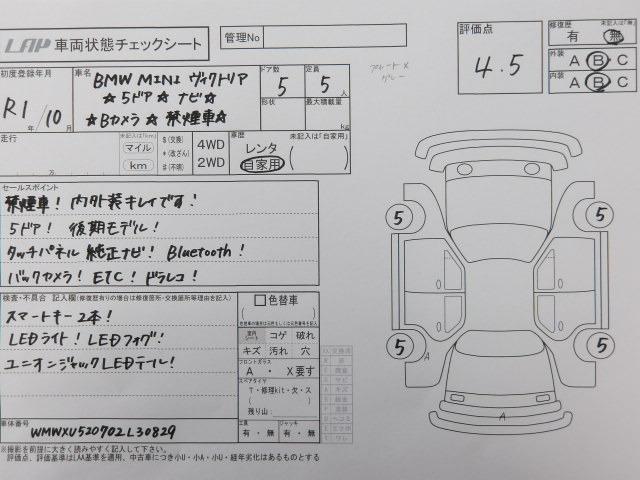 LAP 車両状態チェックシート
管理No
評価点
4.5
修復歴 未記入は「無」
有 無
外装
A B C
内装
A B C
初度登録年月
R1年/10月
車名
BMW MINI ヴィクトリア
☆5ドア☆ナビ☆
☆Bカメラ☆禁煙車☆
ドア数
5
定員
5人
形状
最大積載量
kg
走行
万
未記入は「km」
マイル
km
$(交換)
*(改ざん)
#(不明)
4WD
2WD
車歴 未記入は「自家用」
レンタ
自家用
セールスポイント
禁煙車! 内外装キレイです!
5ドア! 後期モデル!
タッチパネル純正ナビ! Bluetooth!
バックカメラ! ETC! ドラレコ!
検査・不具合 記入欄(修復歴有りの場合は修復箇所・交換箇所等理由を記入)
スマートキー2本!
LEDライト! LEDフォグ!
ユニオンジャックLEDテール!
色替車
コゲ 破れ
キズ 汚れ 穴
フロントガラス
A ・ X要す
スペアタイヤ
T・修理kit・欠・ス
残り山:
工具
有・無
ジャッキ
有・無
車体番号
WMWXU520702L30829
※撮影を前提に大きく読みやすく記入して下さい。
評価点、評価基準はLAA基準を適用、中古車につき小U・小A・小U・経年劣化はあるものとする
5
5
5
5
A
A